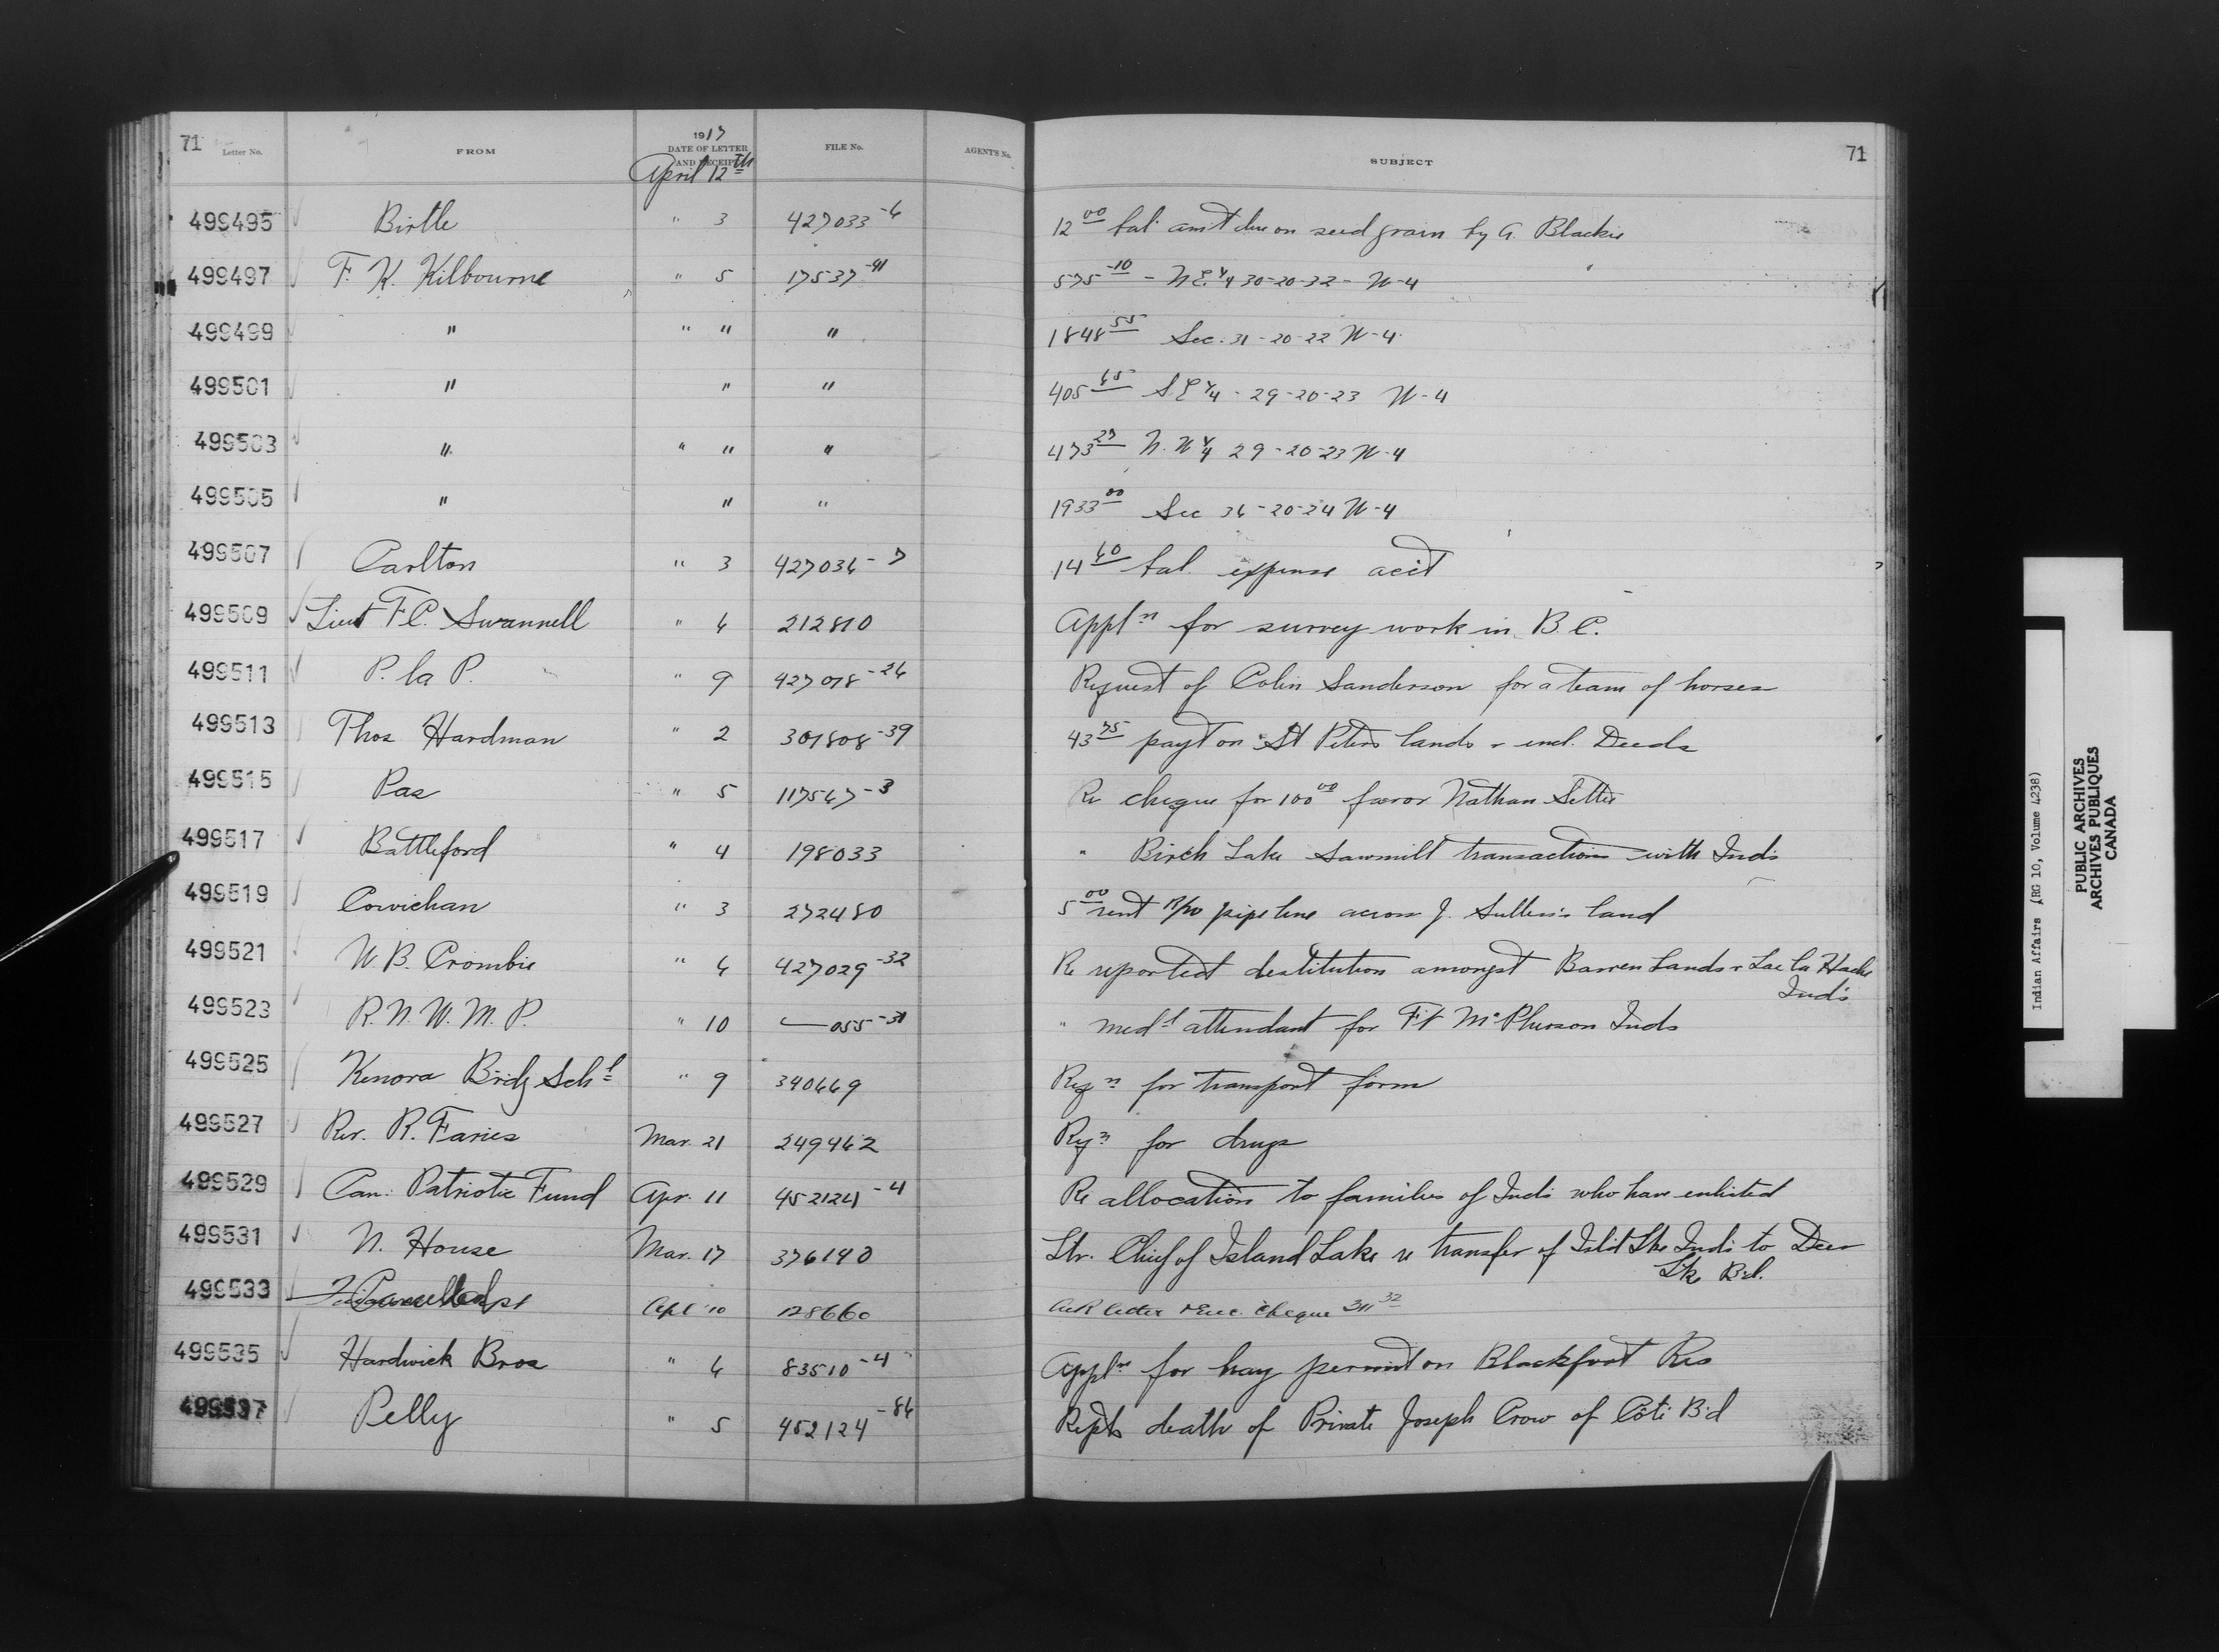 71 Letter No. FROM 1917 DATE OF LETTER AND RECEIPT FILE No. AGENT'S No. SUBJECT 71
April 12th
499495 Birtle " 3 427033-6 12 00 bal. am't due on seed grain by G. Blackie
499497 F. K. Kilbourne " 5 17537-41 575-10 - N E 1/4 30-20-32- W-4
499499 " " " " 1848 55 Sec. 31-20-22 W-4
499501 " " " 405 65 S E 1/4 - 29-20-23 W-4
499503 " " " " 473 27 N. W 1/4 29-20-23 W-4
499505 " " " 1933 00 Sec 36-20-24 W-4
499507 Carlton " 3 427036-7 14 60 bal. expense acc't
499509 Lieut F C. Swannell " 6 212810 Appln for survey work in B C.
499511 P. la P. " 9 427078-26 Request of Colin Sanderson for a team of horses
499513 Thos Hardman " 2 301808-39 43 75 payt on St Peters lands & encl. Deeds
499515 Pas " 5 117567-3 Re cheque for 100 00 favor Nathan Settee
499517 Battleford " 4 198033 " Birch Lake Sawmill transactions with Inds
499519 Cowichan " 3 272480 5 00 rent pipe line across J. land
499521 W. B. Crombie " 6 427029-32 Re reported destitution amongst Barren Lands & Lac la Hache
Inds
499523 R. N. W. M. P. " 10 — 055-31 " medl attendant for Ft McPherson Inds
499525 Kenora Brdg Schl " 9 340669 Reqn for transport form
499527 Rev. R. Faries Mar. 21 249462 Reqn for drugs
499529 Can. Patriotic Fund Apr. 11 452124-4 Re allocation to families of Inds who have enlisted
499531 N. House Mar. 17 376140 Ltr. Chief of Island Lake re transfer of Isl'd Lke Inds to Deer
Lk B'd.
499533 Cancelled Apl 10 128660 Ack letter & Enc. cheque 311 32
499535 Hardwick Bros " 6 83510-4 Appln for hay permit on Blackfoot Res
499537 Pelly " 5 452124-86 Repts death of Private Joseph Crow of Côté B'd
Indian Affairs (RG 10, Volume 4238)
PUBLIC ARCHIVES
ARCHIVES PUBLIQUES
CANADA